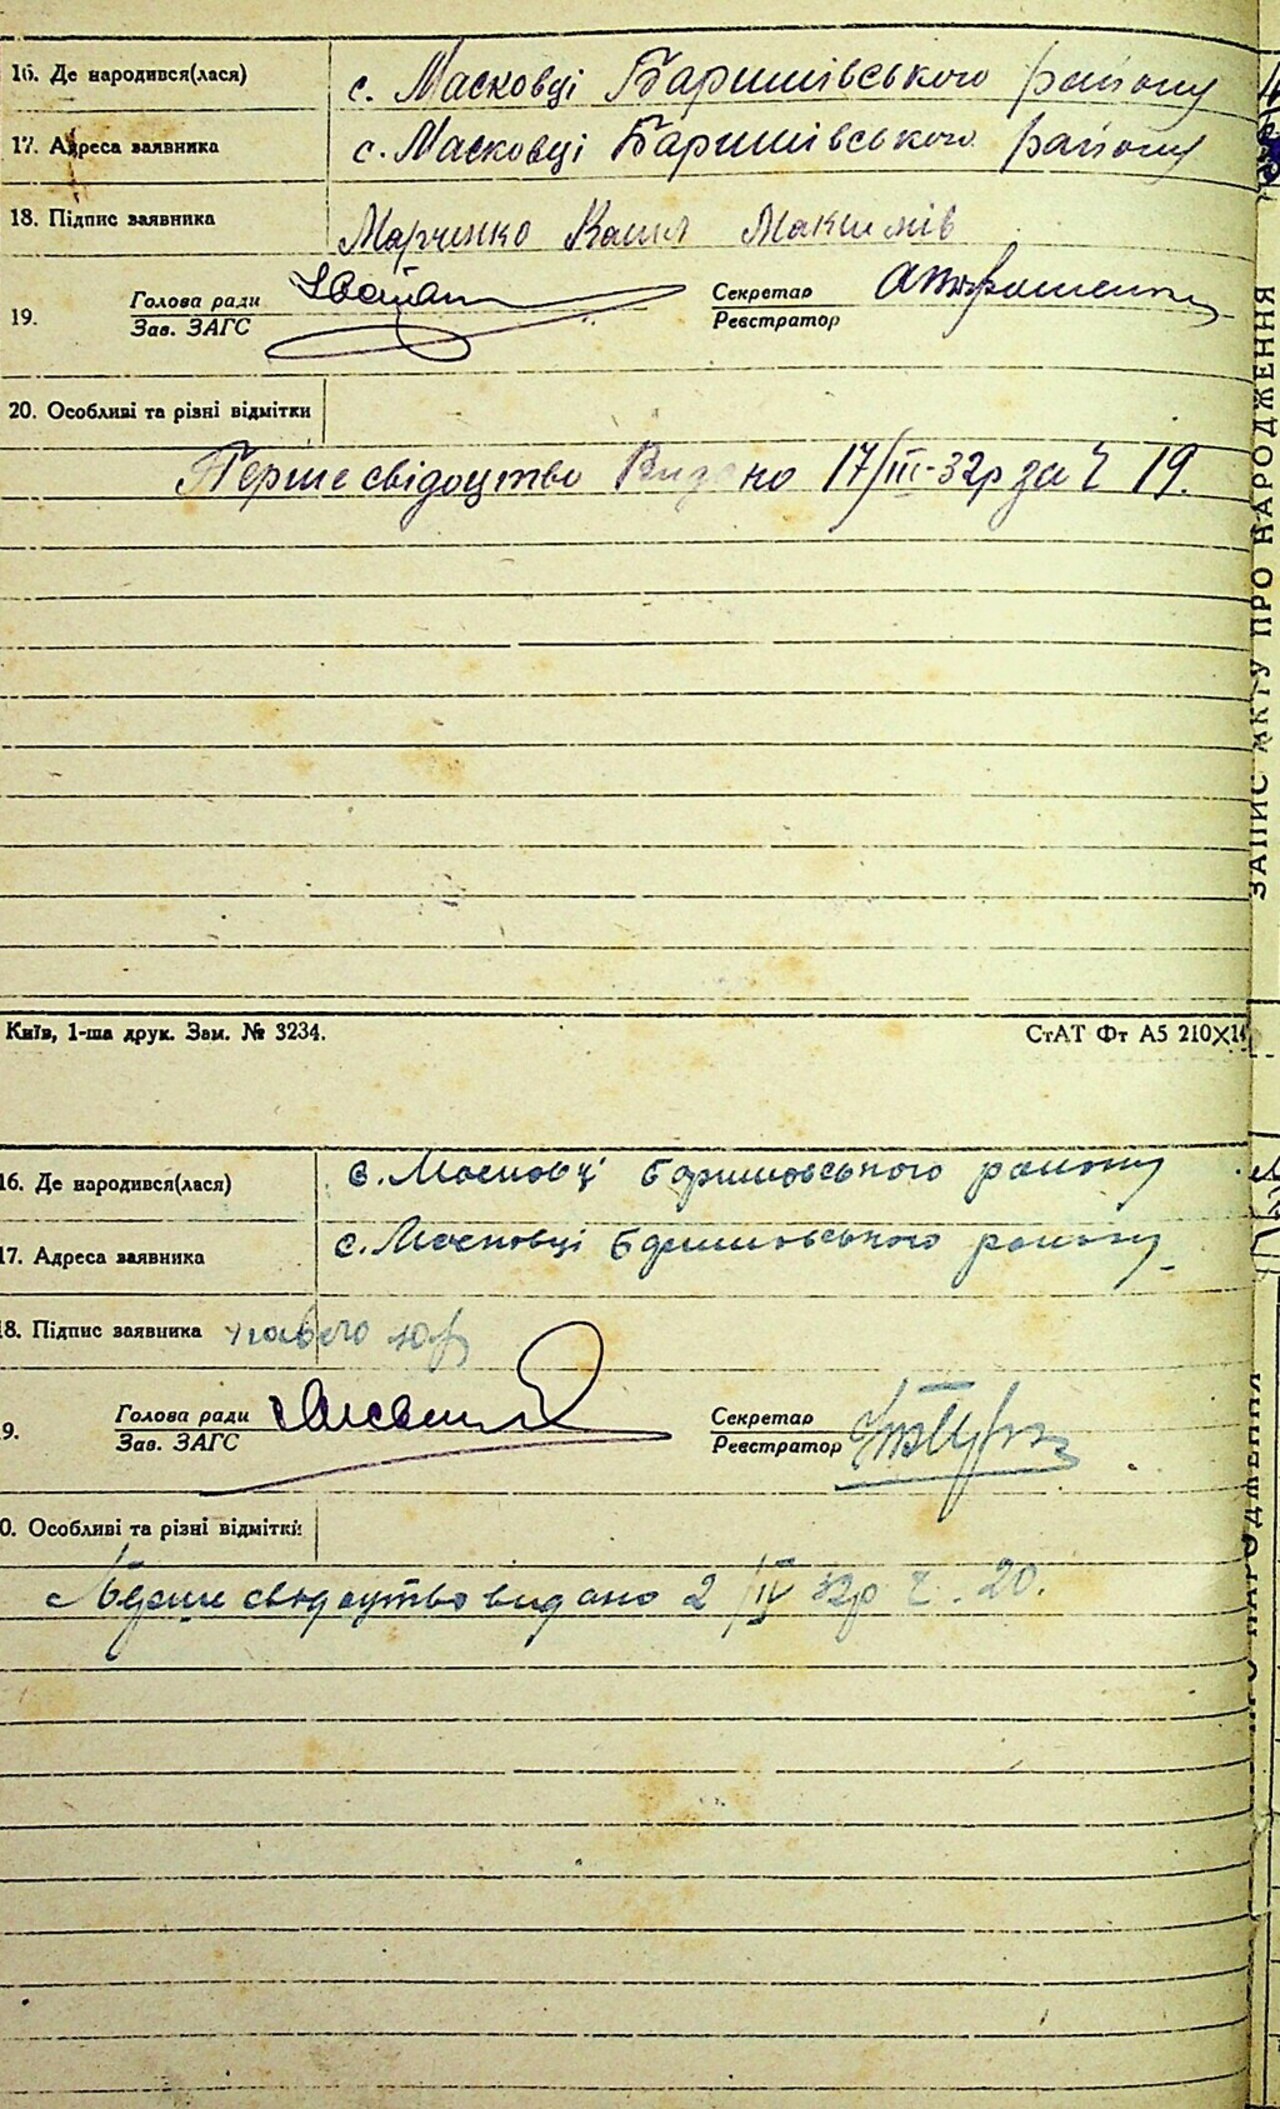 16. Де народився(лася) с. Масковці Баришівського району
17. Адреса заявника с. Масковці Баришівського району
18. Підпис заявника Марченко Макимів
19. Голова ради Секретар
Зав. ЗАГС Реєстратор
20. Особливі та різні відмітки
Перше свідоцтво Видано 17/III-32р за Ч 19.
Київ, 1-ша друк. Зам. № 3234. СтАТ Фт А5 210×14
ЗАПИС АКТУ ПРО НАРОДЖЕННЯ
16. Де народився(лася) с. Масковці Баришовського району
17. Адреса заявника с. Масковці Баришовського району
18. Підпис заявника
9. Голова ради Секретар
Зав. ЗАГС Реєстратор
0. Особливі та різні відмітки
Перше свідоцтво видано 2/IV 32р Ч. 20.
ПРО НАРОДЖЕННЯ